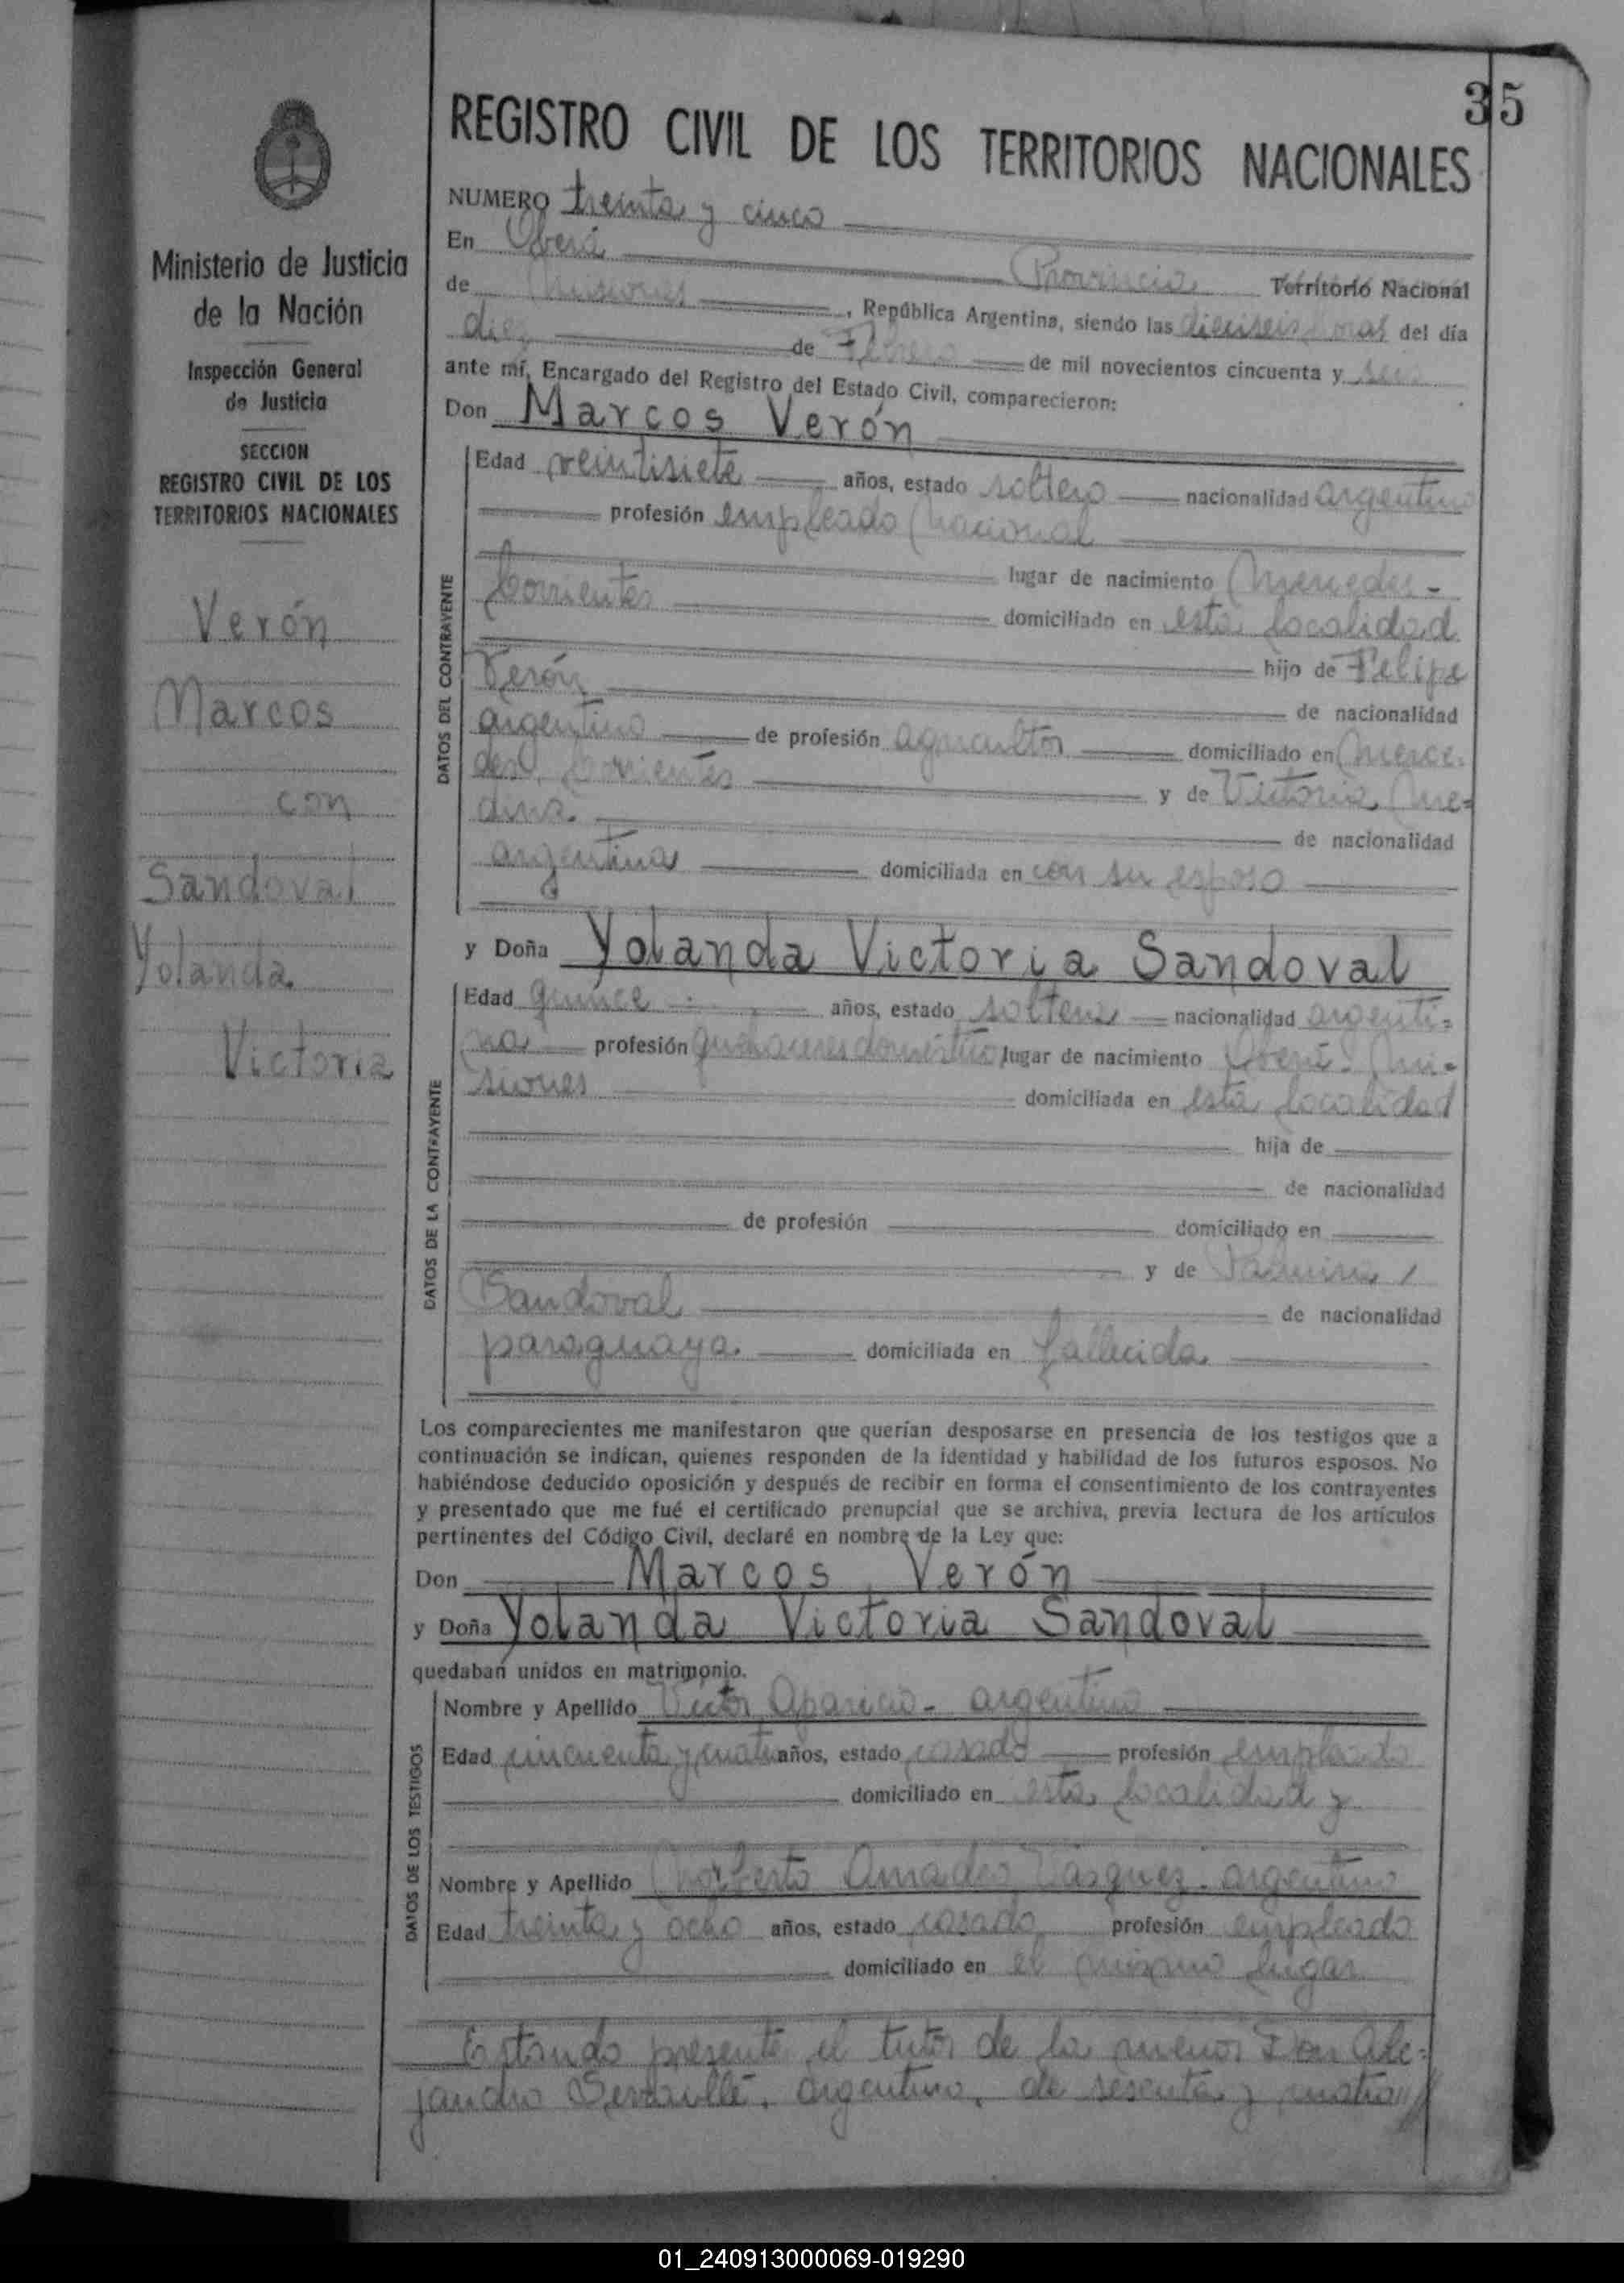 35
Ministerio de Justicia
de la Nación
Inspección General
de Justicia
SECCION
REGISTRO CIVIL DE LOS
TERRITORIOS NACIONALES
Verón
Marcos
con
Sandoval
Yolanda
Victoria
REGISTRO CIVIL DE LOS TERRITORIOS NACIONALES
NUMERO treinta y cinco
En Oberá Provincia Territorio Nacional
de Misiones, República Argentina, siendo las dieciseis horas del día
diez de Febrero de mil novecientos cincuenta y seis
ante mí, Encargado del Registro del Estado Civil, comparecieron:
Don Marcos Verón
DATOS DEL CONTRAYENTE
Edad veintisiete años, estado soltero nacionalidad argentino
profesión empleado nacional
lugar de nacimiento Mercedes -
Corrientes domiciliado en esta localidad
hijo de Felipe
Verón de nacionalidad
argentino de profesión agricultor domiciliado en Merce-
des, Corrientes y de Victoria Me-
dina de nacionalidad
argentina domiciliada en con su esposo
y Doña Yolanda Victoria Sandoval
DATOS DE LA CONTRAYENTE
Edad quince años, estado soltera nacionalidad argenti-
na profesión quehaceres domésticos lugar de nacimiento Oberá - Mi-
siones domiciliada en esta localidad
hija de
de nacionalidad
de profesión domiciliado en
y de
Sandoval de nacionalidad
paraguaya domiciliada en fallecida
Los comparecientes me manifestaron que querían desposarse en presencia de los testigos que a
continuación se indican, quienes responden de la identidad y habilidad de los futuros esposos. No
habiéndose deducido oposición y después de recibir en forma el consentimiento de los contrayentes
y presentado que me fué el certificado prenupcial que se archiva, previa lectura de los artículos
pertinentes del Código Civil, declaré en nombre de la Ley que:
Don Marcos Verón
y Doña Yolanda Victoria Sandoval
quedaban unidos en matrimonio.
DATOS DE LOS TESTIGOS
Nombre y Apellido Victor Aparicio - argentino
Edad cincuenta y cuatro años, estado casado profesión empleado
domiciliado en esta localidad y
Nombre y Apellido Norberto Amadeo Vasquez - argentino
Edad treinta y ocho años, estado casado profesión empleado
domiciliado en el mismo lugar
Estando presente el tutor de la menor Don Ale-
jandro argentino, de sesenta y cuatro
01_240913000069-019290